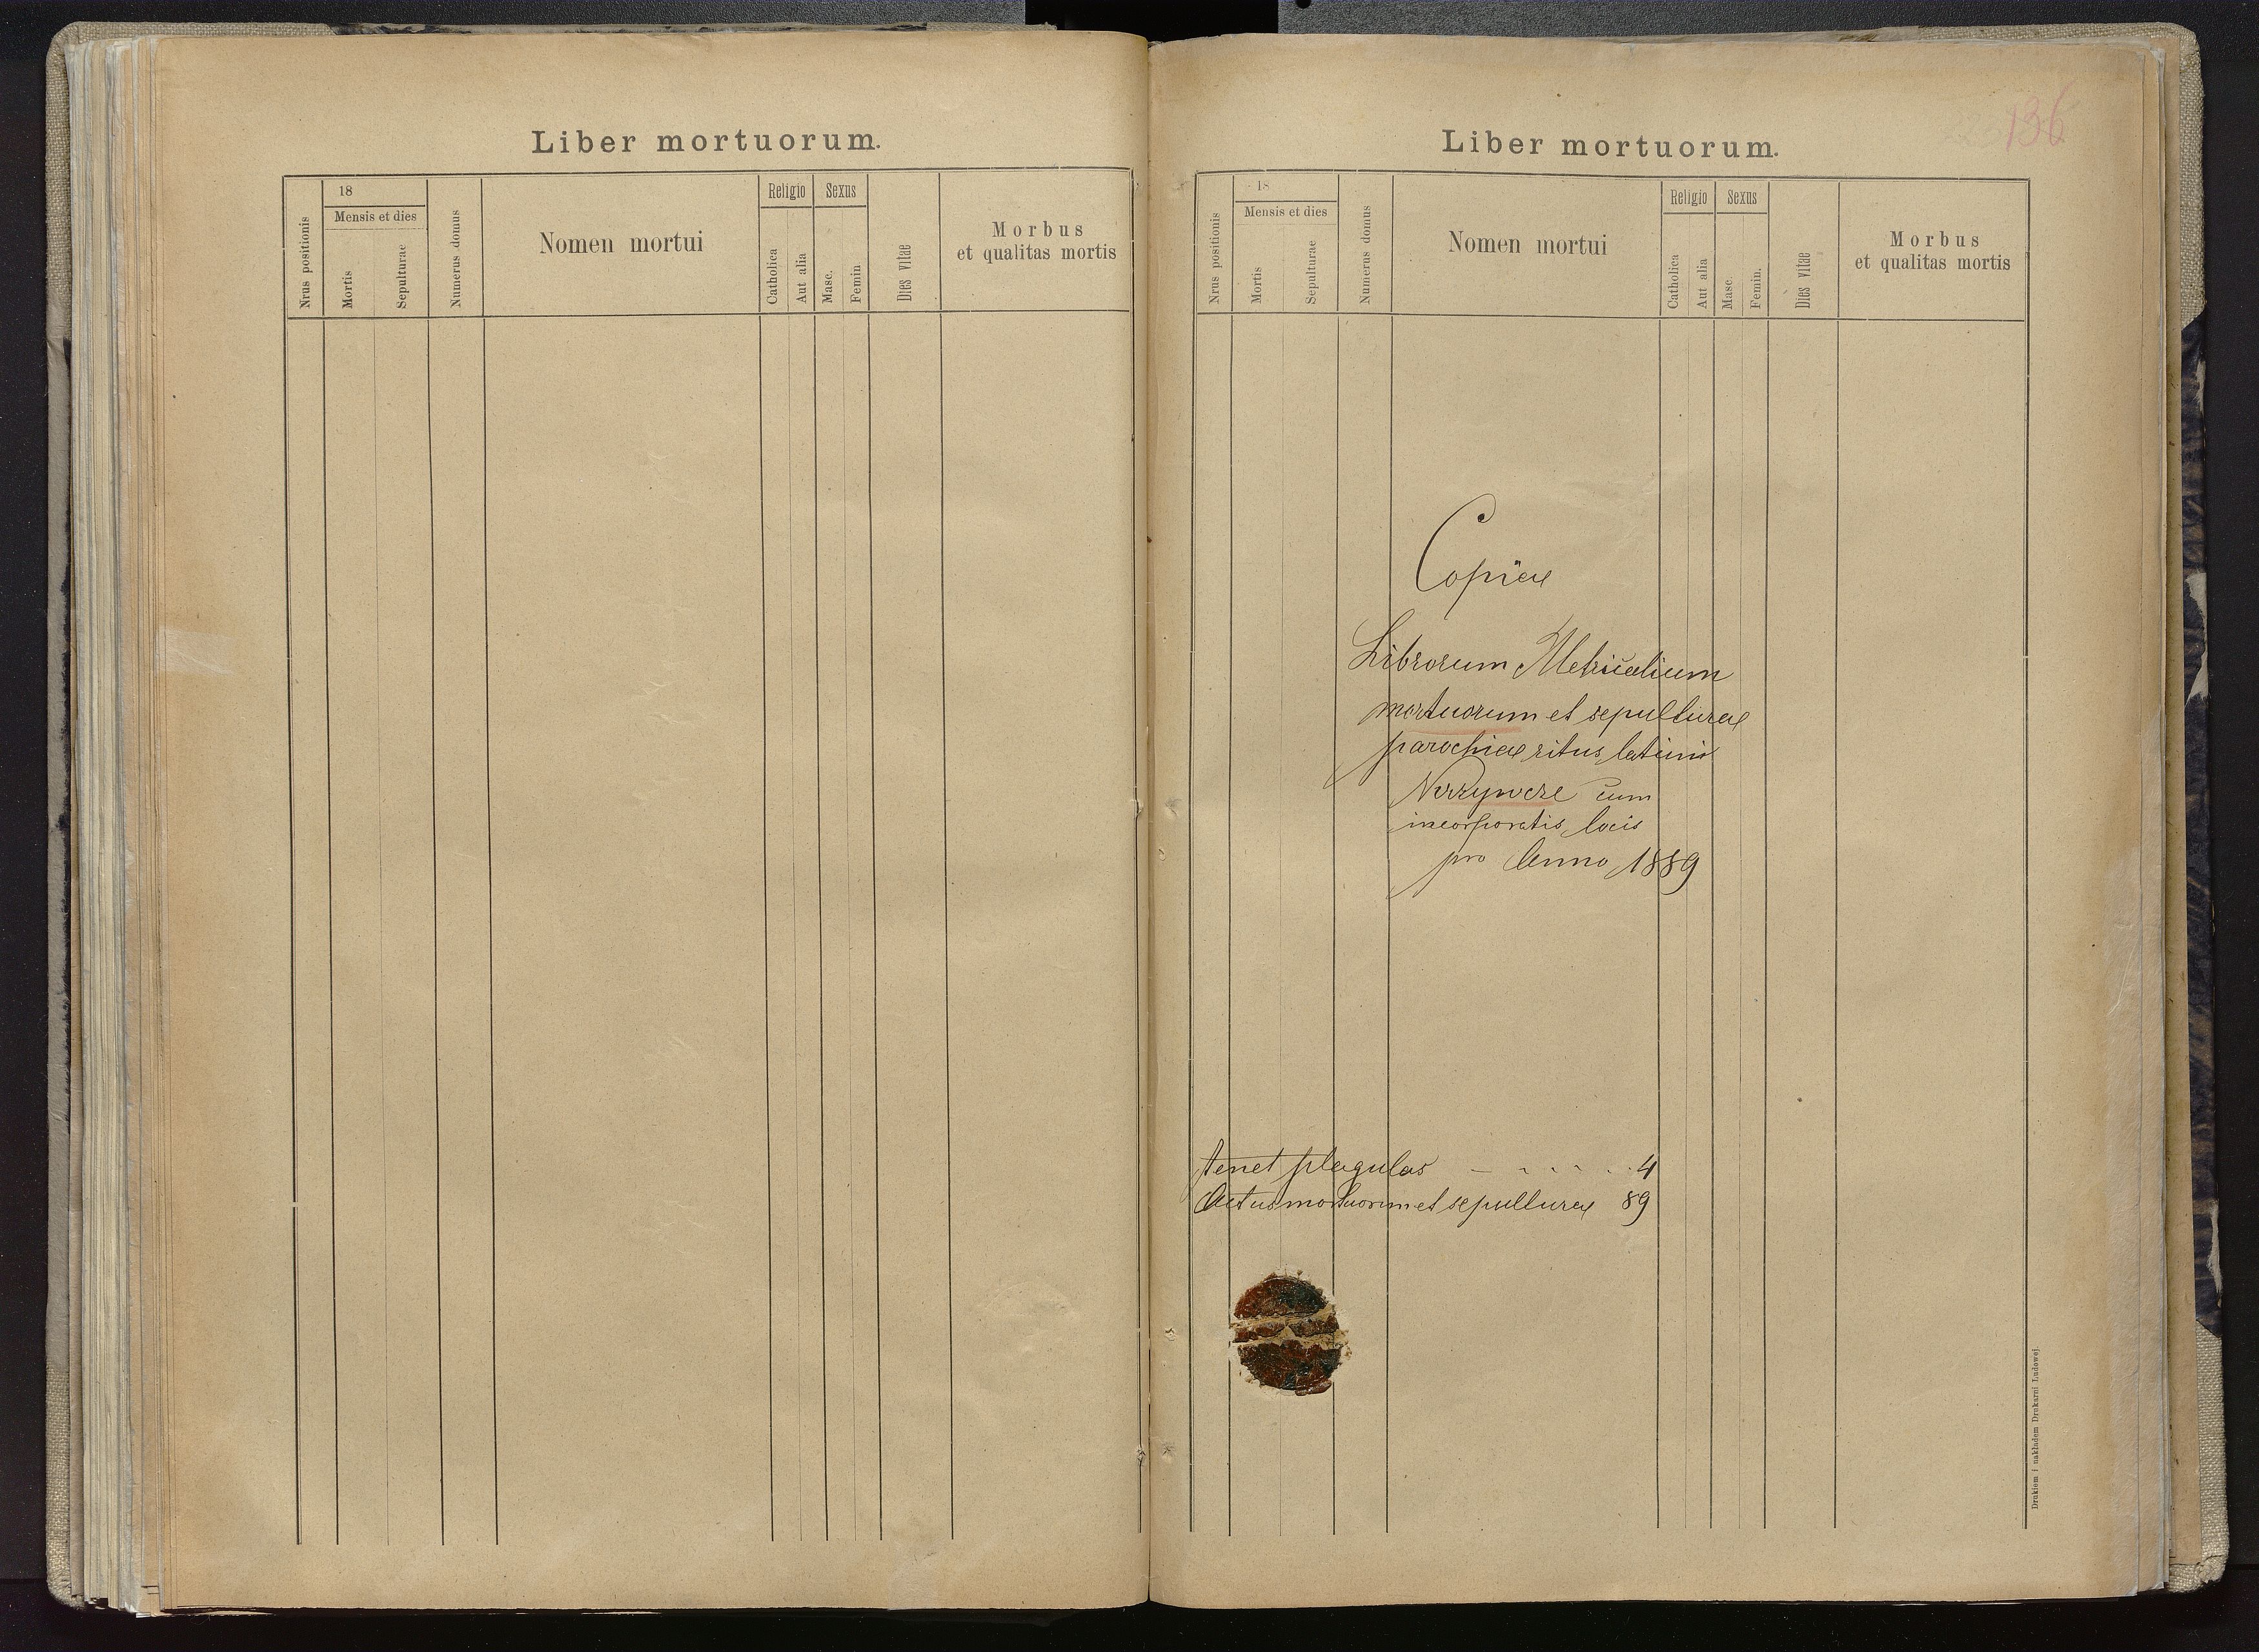 Liber mortuorum.
Nrus positionis
18
Mensis et dies
Mortis
Sepulturae
Numerus domus
Nomen mortui
Religio
Catholica
Aut alia
Sexus
Masc.
Femin
Dies vitae
Morbus
et qualitas mortis
136
Liber mortuorum.
Nrus positionis
18
Mensis et dies
Mortis
Sepulturae
Numerus domus
Nomen mortui
Religio
Catholica
Aut alia
Sexus
Masc.
Femin.
Dies vitae
Morbus
et qualitas mortis
Copiae
Librorum Metricalium
mortuorum et sepulturae
parochiae ritus latini
cum
incorporatis locis
pro Anno 1889
tenet plagulas 4
Actus mortuorum et sepulturae 89
Drukiem i nakładem Drukarni Ludowej.